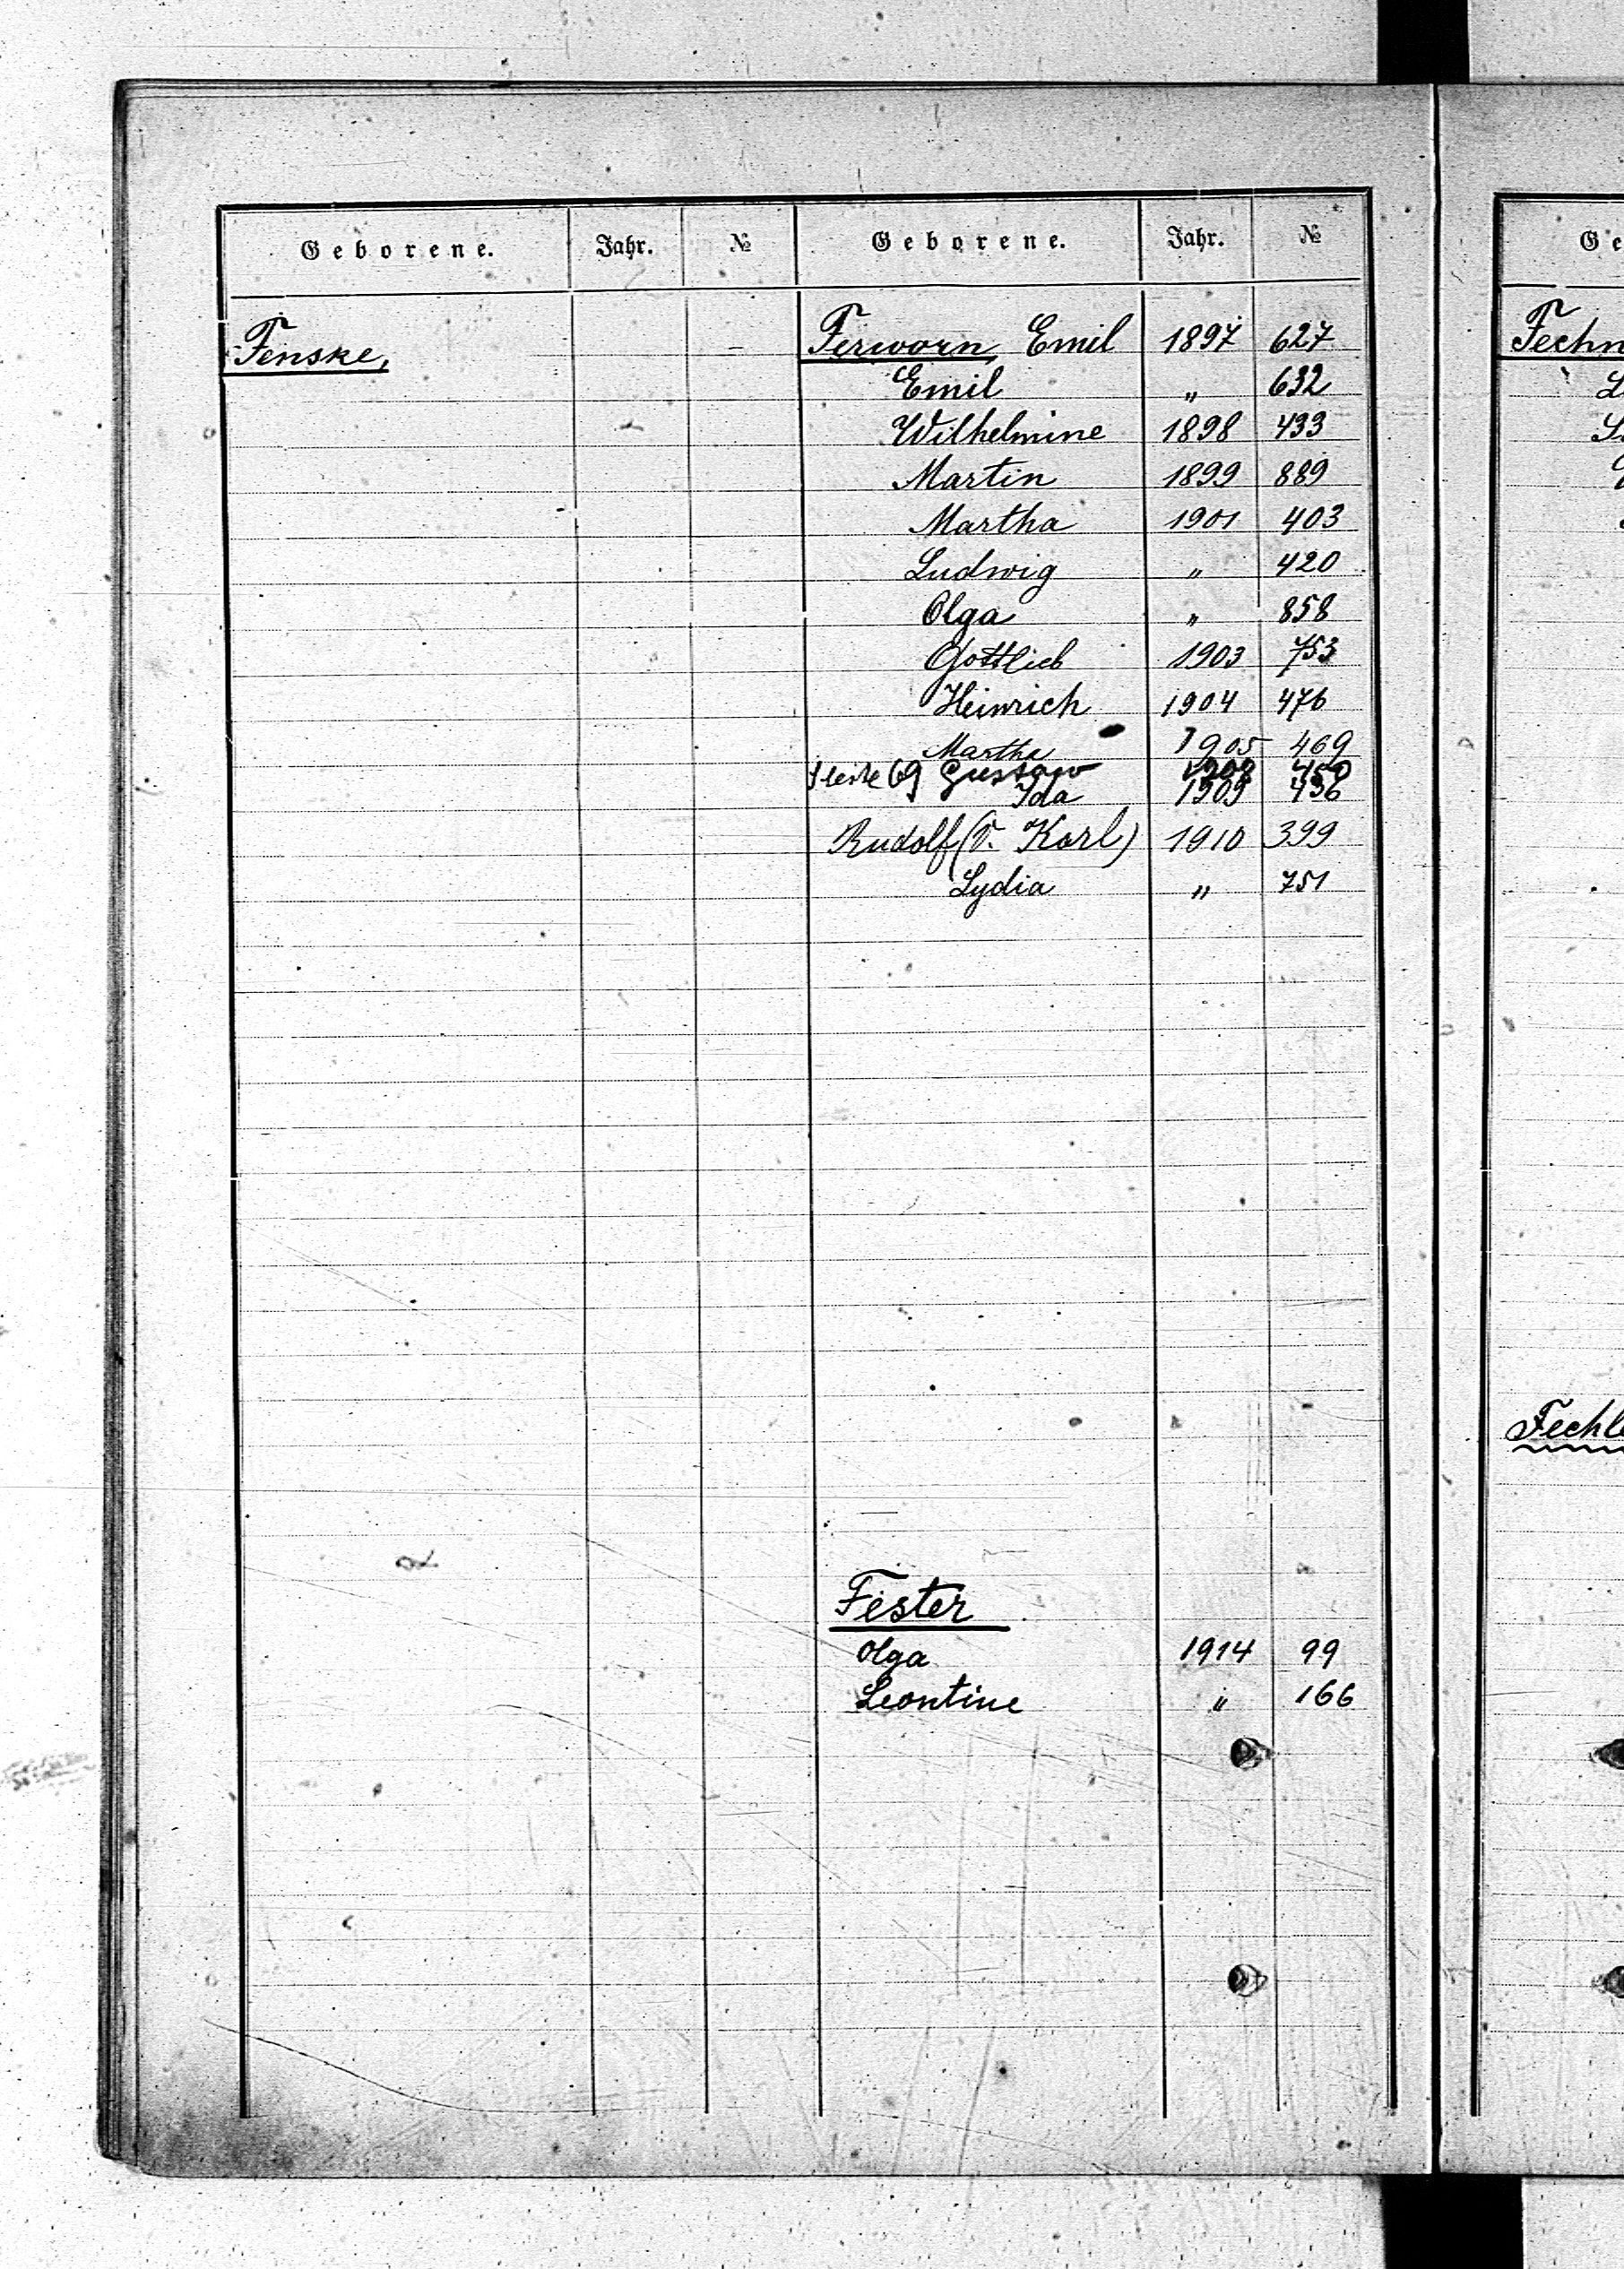 Geborene. Jahr. № Geborene. Jahr. №
Fenske,
Ferworn, Emil 1897 627
Emil " 632
Wilhelmine 1898 433
Martin 1899 889
Martha 1901 403
Ludwig " 420
Olga " 858
Gottlieb 1903 753
Heinrich 1904 476
Martha 1905 469
69 Gustaw 450
Ida 1909 436
Rudolf (V. Karl) 1910 399
Lydia " 751
Fester
Olga 1914 99
Leontine " 166